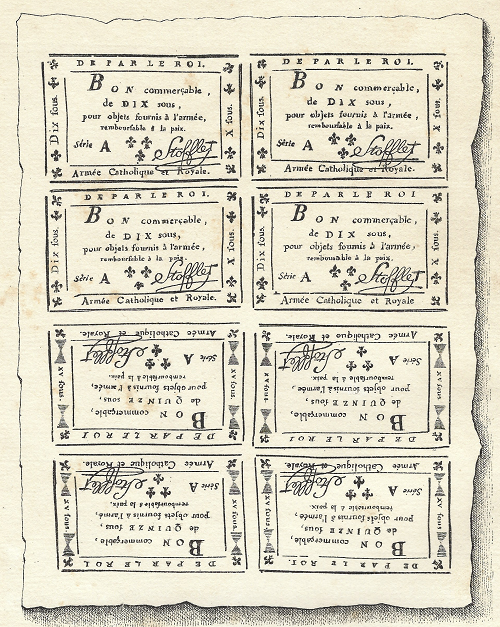 DE PAR LE ROI.
BON commerçable,
de DIX sous,
pour objets fournis à l'armée,
remboursable à la paix.
Série A Stofflet
Armée Catholique et Royale.
Dix sous.
X sous.
DE PAR LE ROI.
BON commerçable,
de DIX sous,
pour objets fournis à l'armée,
remboursable à la paix.
Série A Stofflet
Armée Catholique et Royale.
Dix sous.
X sous.
DE PAR LE ROI.
BON commerçable,
de DIX sous,
pour objets fournis à l'armée,
remboursable à la paix.
Série A Stofflet
Armée Catholique et Royale.
Dix sous.
X sous.
DE PAR LE ROI
BON commerçable,
de DIX sous,
pour objets fournis à l'armée,
remboursable à la paix.
Série A Stofflet
Armée Catholique et Royale
Dix sous.
X sous.
DE PAR LE ROI
BON commerçable,
de QUINZE sous,
pour objets fournis à l'armée,
remboursable à la paix.
Série A Stofflet
Armée Catholique et Royale.
XV sous.
XV sous.
DE PAR LE ROI
BON commerçable,
de QUINZE sous,
pour objets fournis à l'armée,
remboursable à la paix.
Série A Stofflet
Armée Catholique et Royale.
XV sous.
XV sous.
DE PAR LE ROI
BON commerçable,
de QUINZE sous,
pour objets fournis à l'armée,
remboursable à la paix.
Série A Stofflet
Armée Catholique et Royale.
XV sous.
XV sous.
DE PAR LE ROI.
BON commerçable,
de QUINZE sous,
pour objets fournis à l'armée,
remboursable à la paix.
Série A Stofflet
Armée Catholique et Royale.
XV sous.
XV sous.